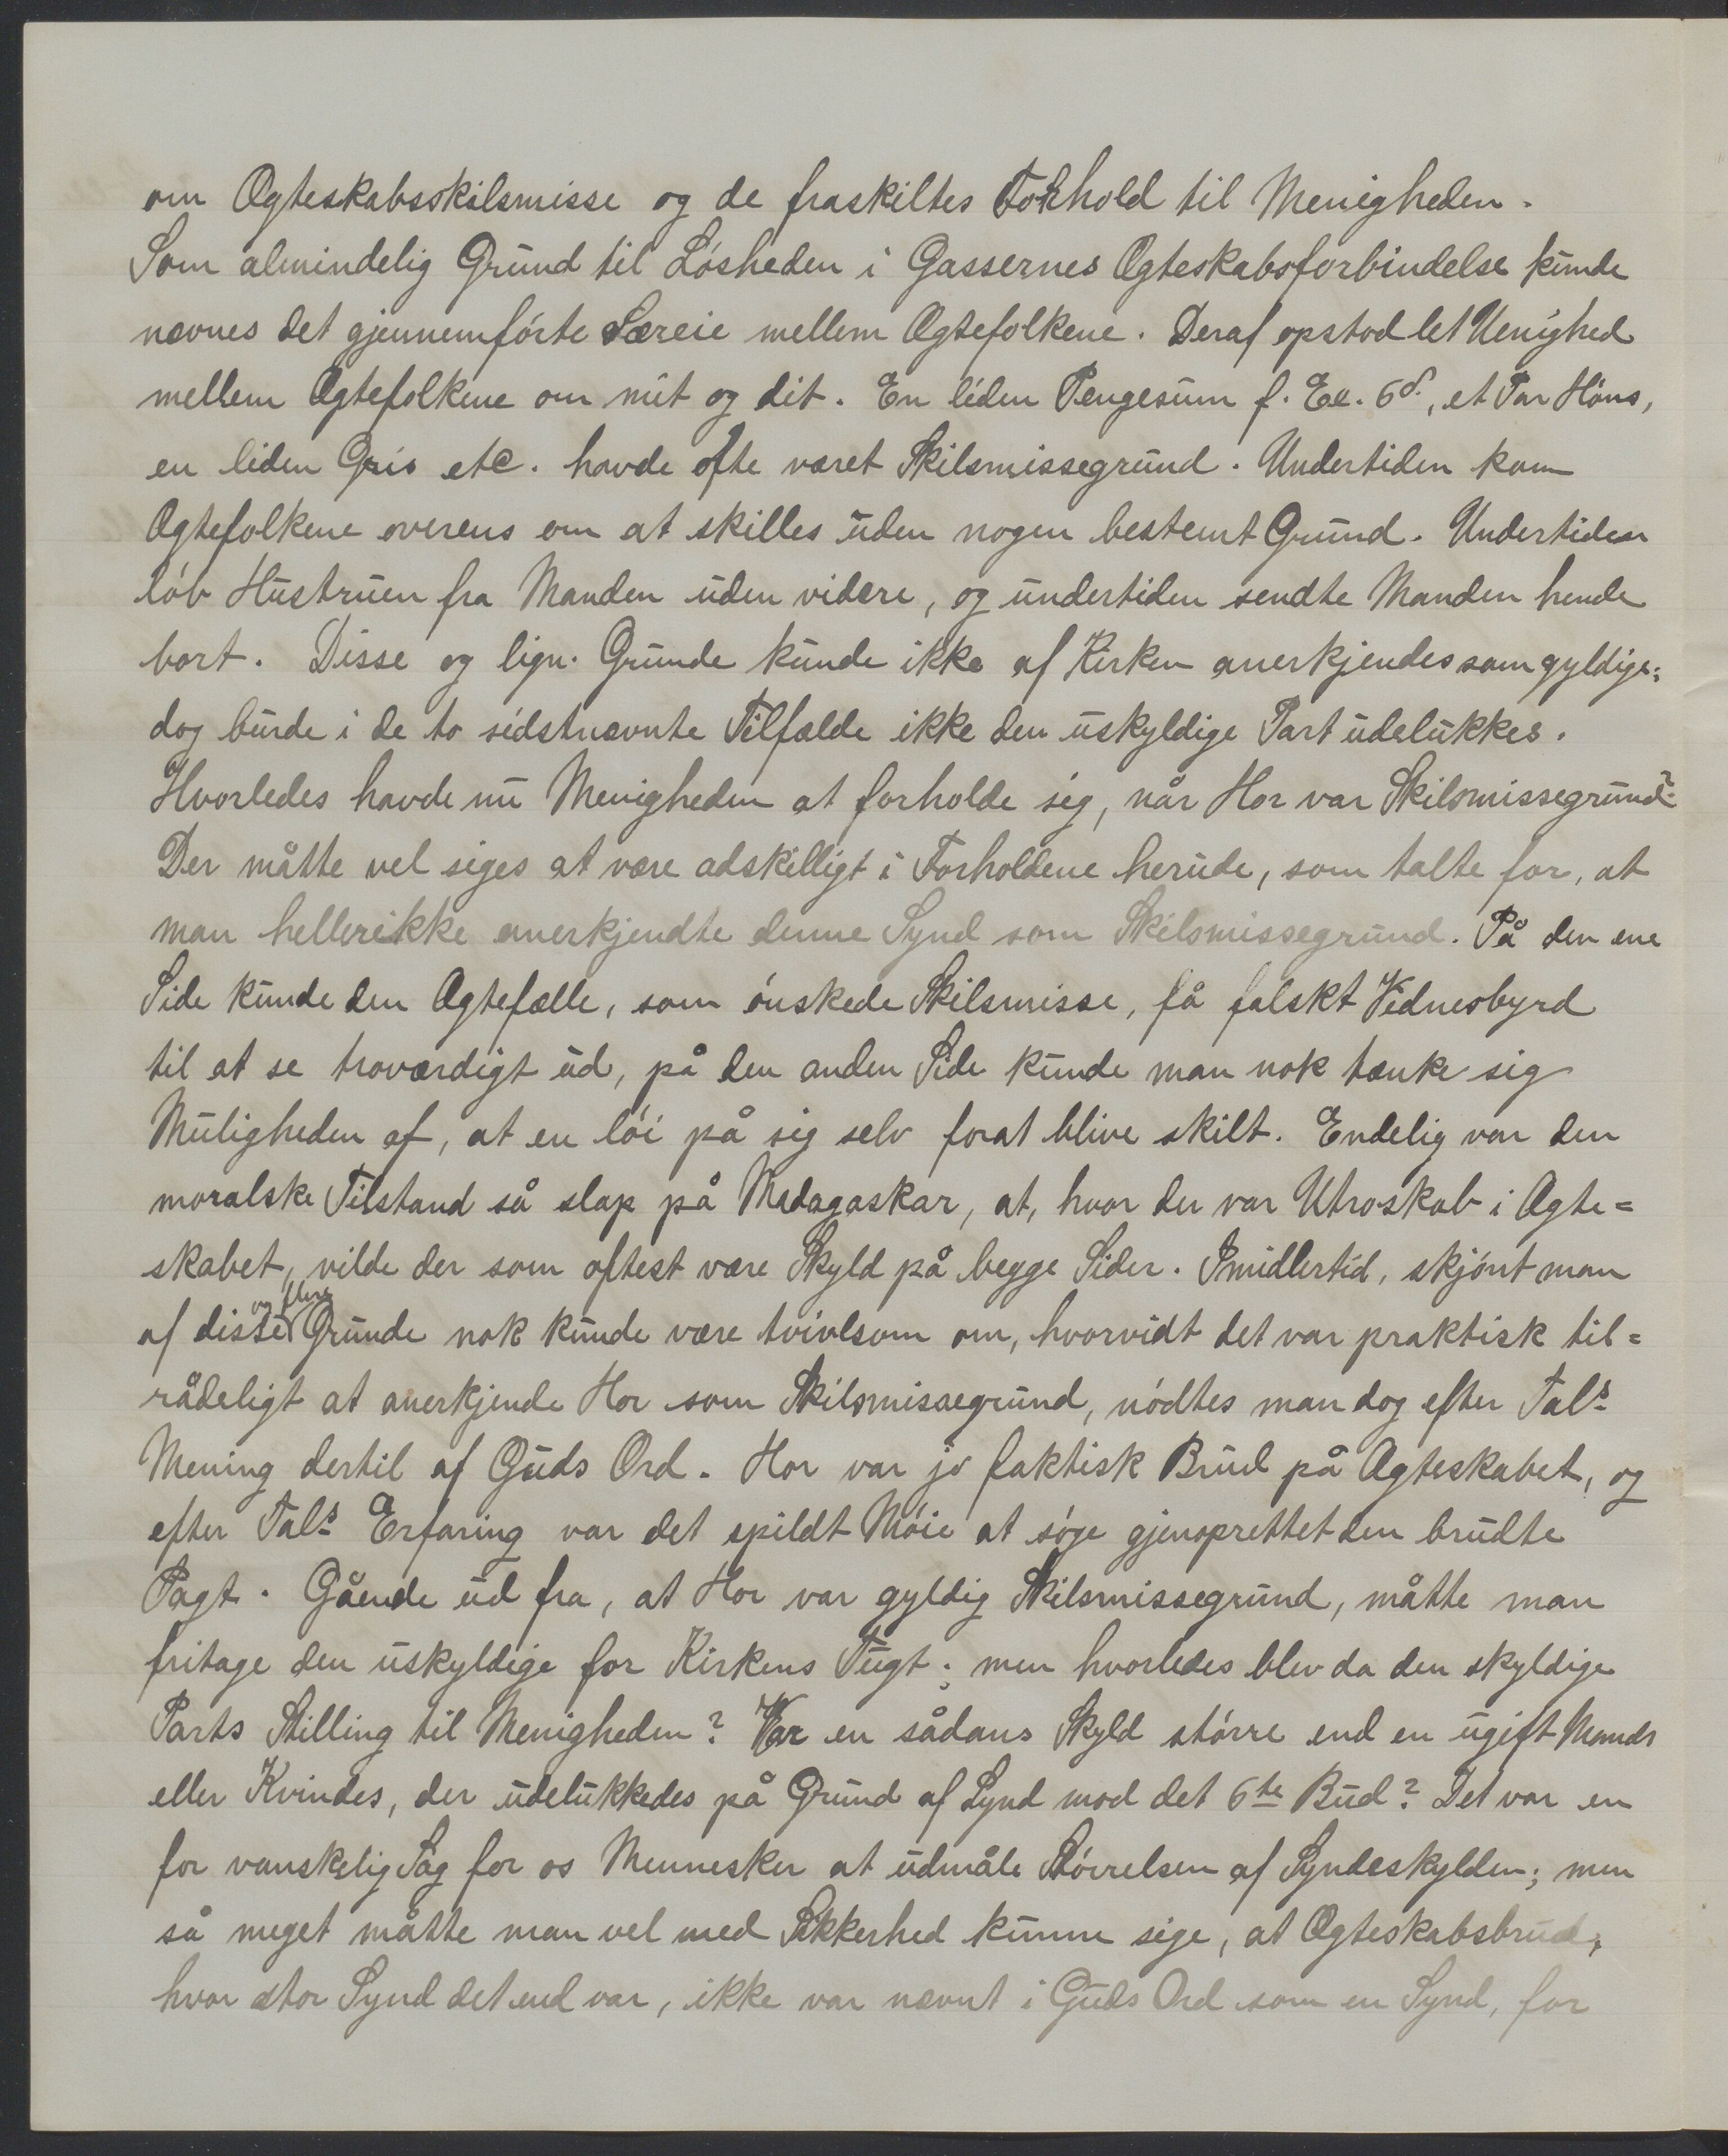 om Ægteskabsskilsmisse og de fraskiltes Forhold til Menigheden.
Som almindelig Grund til Løsheden i Gassernes Ægteskabsforbindelse kunde
nævnes det gjennemførte Særeie mellem Ægtefolkene. Deraf opstod let Uenighed
mellem Ægtefolkene om mit og dit. En liden Pengesum f. Ex. 6 d., et Par Høns,
en liden Gris etc. havde ofte været Skilsmissegrund. Undertiden kom
Ægtefolkene overens om at skilles uden nogen bestemt Grund. Undertiden
løb Hustruen fra Manden uden videre, og undertiden sendte Manden hende
bort. Disse og lign. Grunde kunde ikke af Kirken anerkjendes som gyldige;
dog burde i de to sidstnævnte Tilfælde ikke den uskyldige Part udelukkes.
Hvorledes havde nu Menigheden at forholde sig, når Hor var Skilsmissegrund?
Der måtte vel siges at være adskilligt i Forholdene herude, som talte for, at
man hellerikke anerkjendte denne Synd som Skilsmissegrund. På den ene
Side kunde den Ægtefælle, som ønskede Skilsmisse, få falskt Vidnesbyrd
til at se troværdigt ud, på den anden Side kunde man nok tænke sig
Muligheden af, at en løi på sig selv forat blive skilt. Endelig var den
moralske Tilstand så slap på Madagaskar, at, hvor der var Utroskab i Ægte=
skabet, vilde der som oftest være Skyld på begge Sider. Imidlertid, skjønt man
af disse og flere Grunde nok kunde være tvivlsom om, hvorvidt det var praktisk til=
rådeligt at anerkjende Hor som Skilsmissegrund, nødtes man dog efter Tals
Mening dertil af Guds Ord. Hor var jo faktisk Brud på Ægteskabet, og
efter Tals Erfaring var det spildt Møie at søge gjenoprettet den brudte
Pagt. Gående ud fra, at Hor var gyldig Skilsmissegrund, måtte man
fritage den uskyldige for Kirkens Tugt; men hvorledes blev da den skyldige
Parts Stilling til Menigheden? Var en sådans Skyld større end en ugift Mands
eller Kvindes, der udelukkedes på Grund af Synd mod det 6te Bud? Det var en
for vanskelig Sag for os Mennesker at udmåle Størrelsen af Syndeskylden; men
så meget måtte man vel med Sikkerhed kunne sige, at Ægteskabsbrud,
hvor stor Synd det end var, ikke var nævnt i Guds Ord som en Synd, for